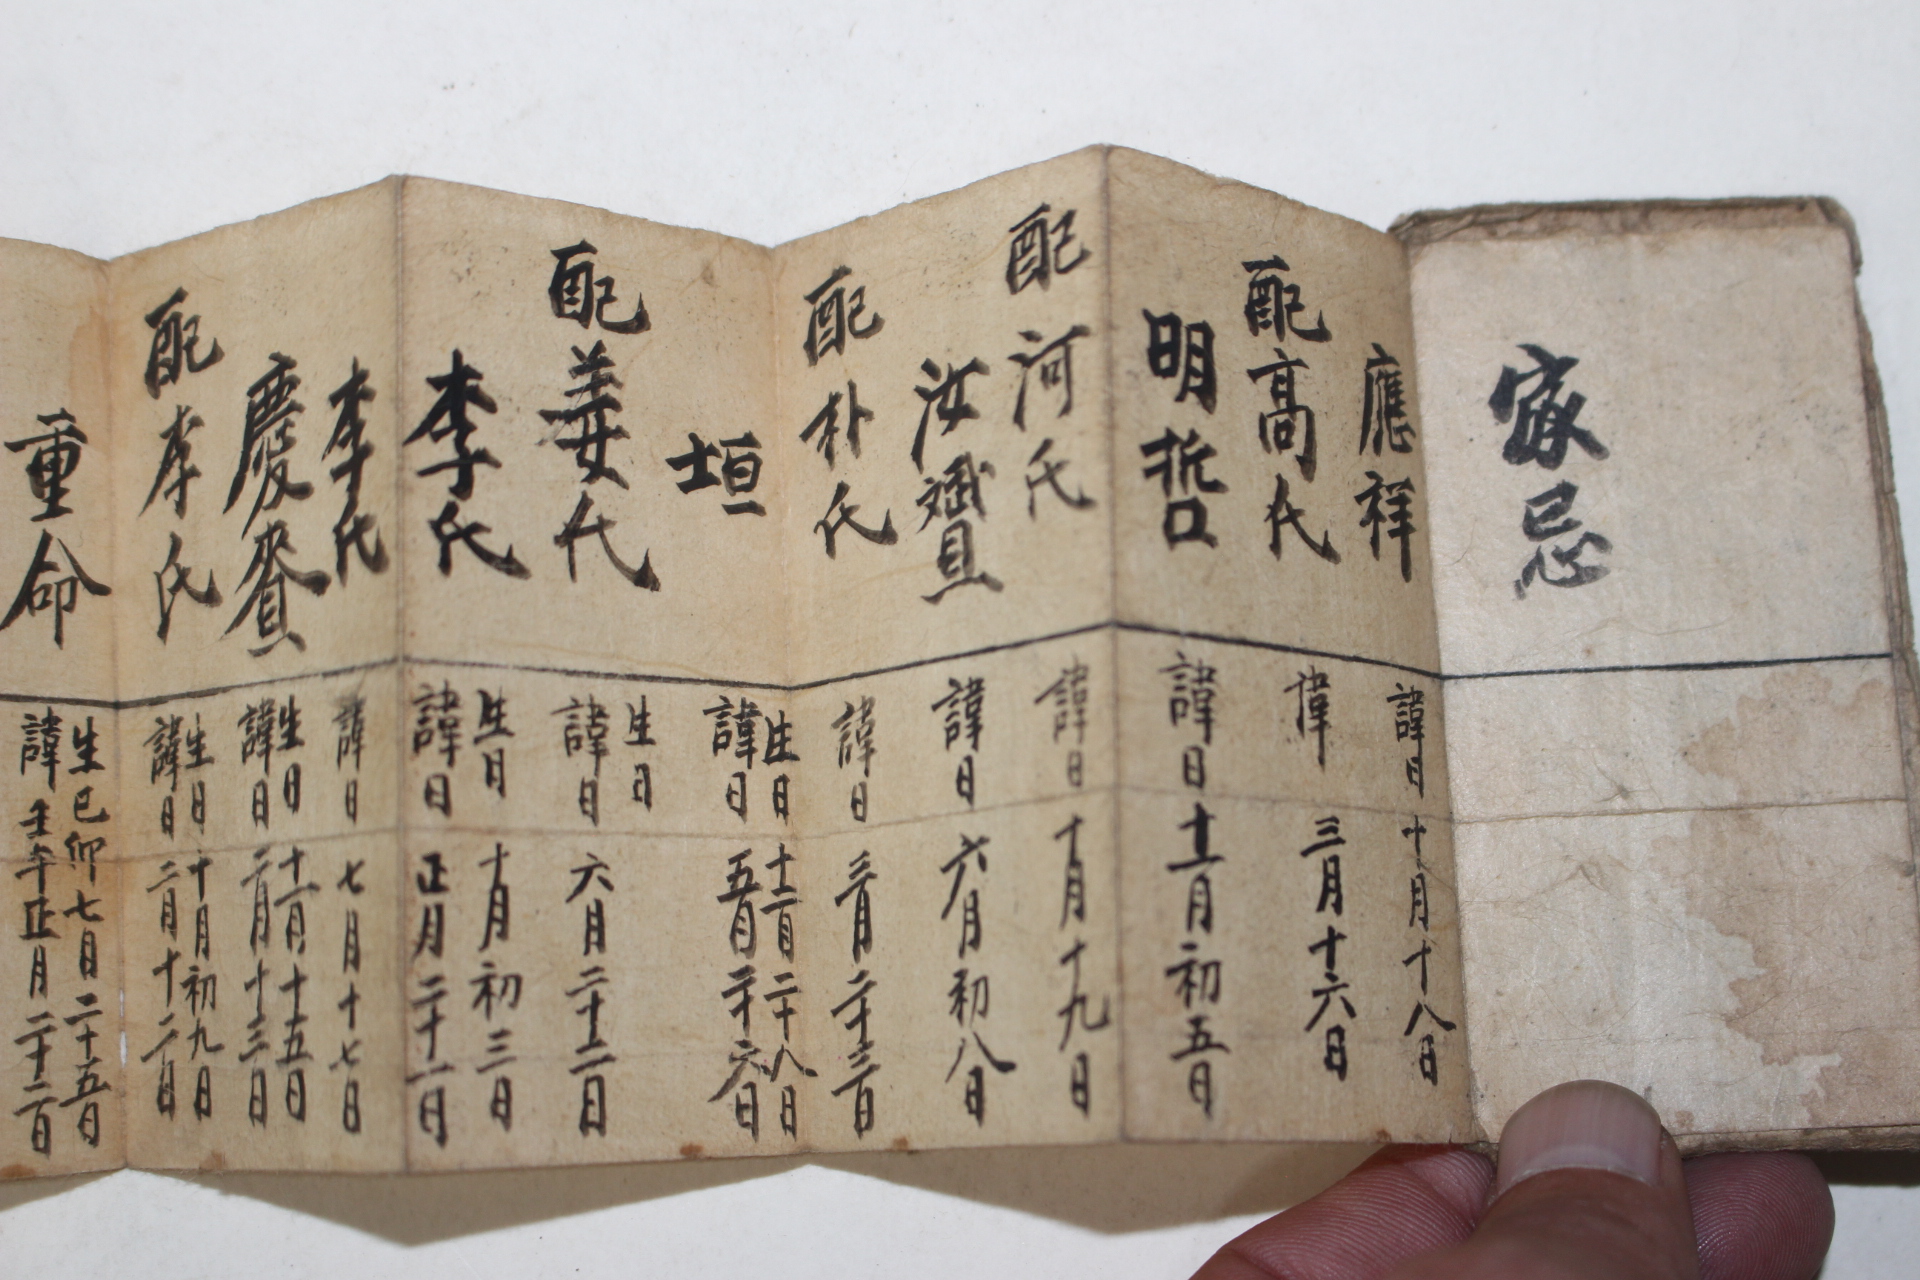 家忌
應祥 諱日 十月十八日
配高氏 諱 三月十六日
明哲 諱日 十一月初五日
配河氏 諱日 十月十九日
汝贇 諱日 六月初八日
配朴氏 諱日 三月二十三日
垣 生日 十一月二十八日
諱日 五月二十六日
配姜氏 生日
諱日 六月二十二日
李氏 生日 十月初三日
諱日 正月二十一日
李氏 諱日 七月十七日
慶賚 生日 十一月十五日
諱日 二月十三日
配李氏 生日 十月初九日
諱日 二月十二日
重命 生己卯七月二十五日
諱壬午正月二十二日